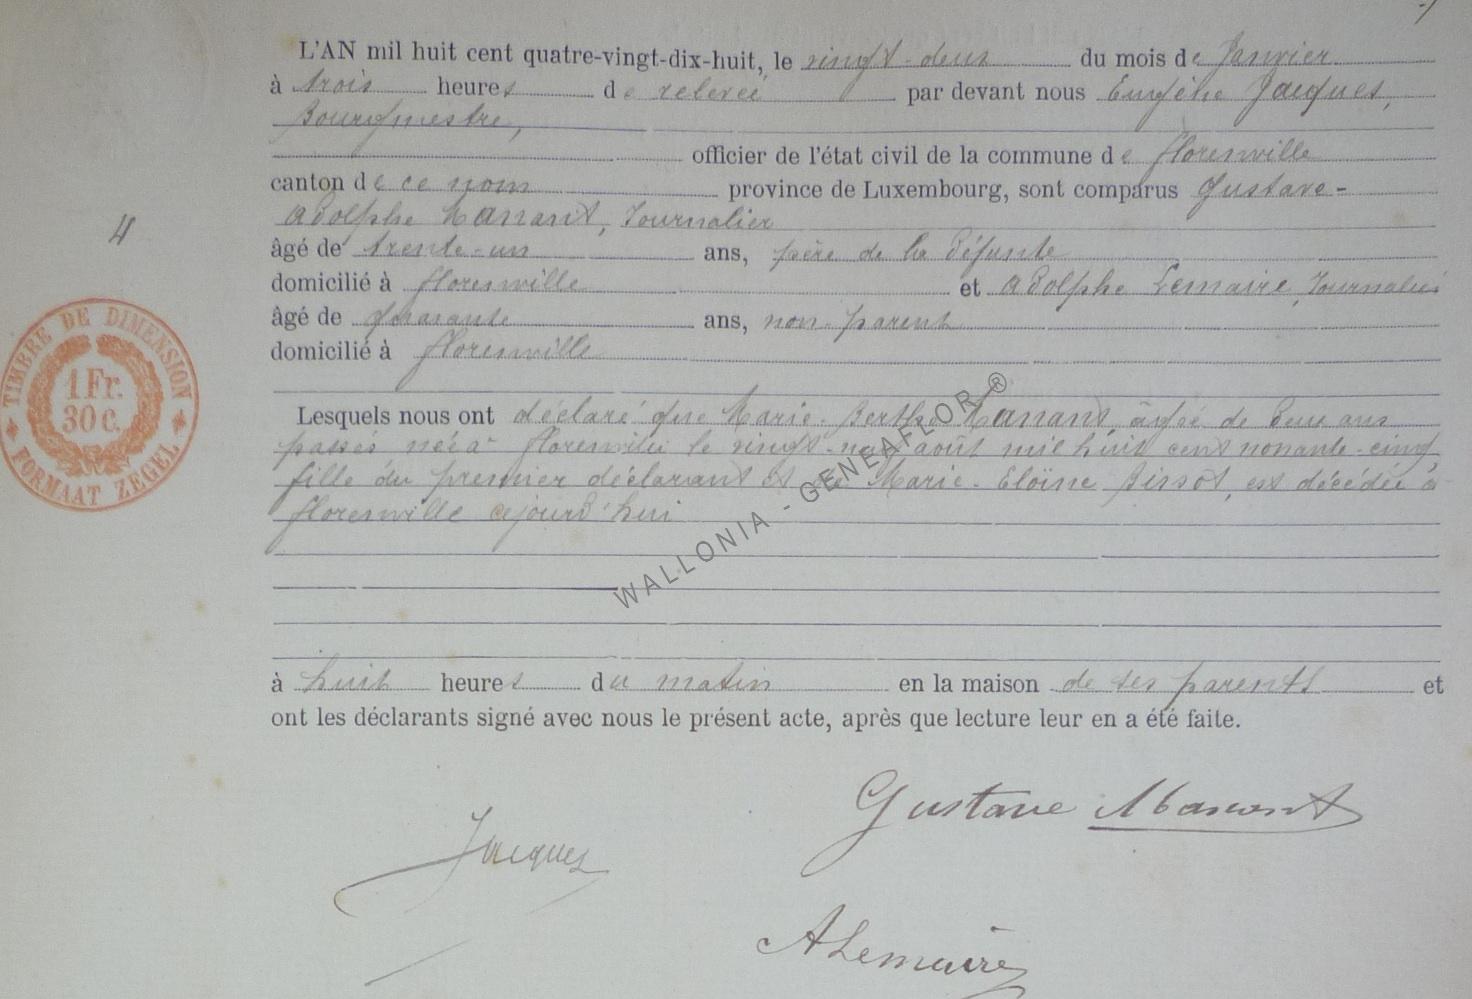 L'AN mil huit cent quatre-vingt-dix-huit, le vingt-deux du mois de Janvier
à trois heures de relevée par devant nous Eugène Jacques,
Bourgmestre,
officier de l'état civil de la commune de Florenville
canton de ce nom province de Luxembourg, sont comparus Gustave-
Adolphe Manant, Journalier
4
âgé de trente-un ans, père de la défunte
domicilié à Florenville et Adolphe Lemaire, Journalier
âgé de quarante ans, non parent
domicilié à Florenville
TIMBRE DE DIMENSION
1 Fr.
30 c.
FORMAAT ZEGEL
Lesquels nous ont déclaré que Marie-Berthe Manant, âgée de deux ans
passés née à Florenville le vingt- août mil huit cent nonante-cinq
fille du premier déclarant et de Marie-Eloïne Bissot, est décédée à
Florenville aujourd'hui
WALLONIA - GENEAFLOR ®
à huit heures du matin en la maison de ses parents et
ont les déclarants signé avec nous le présent acte, après que lecture leur en a été faite.
Gustave Manant
Jacques
A Lemaire